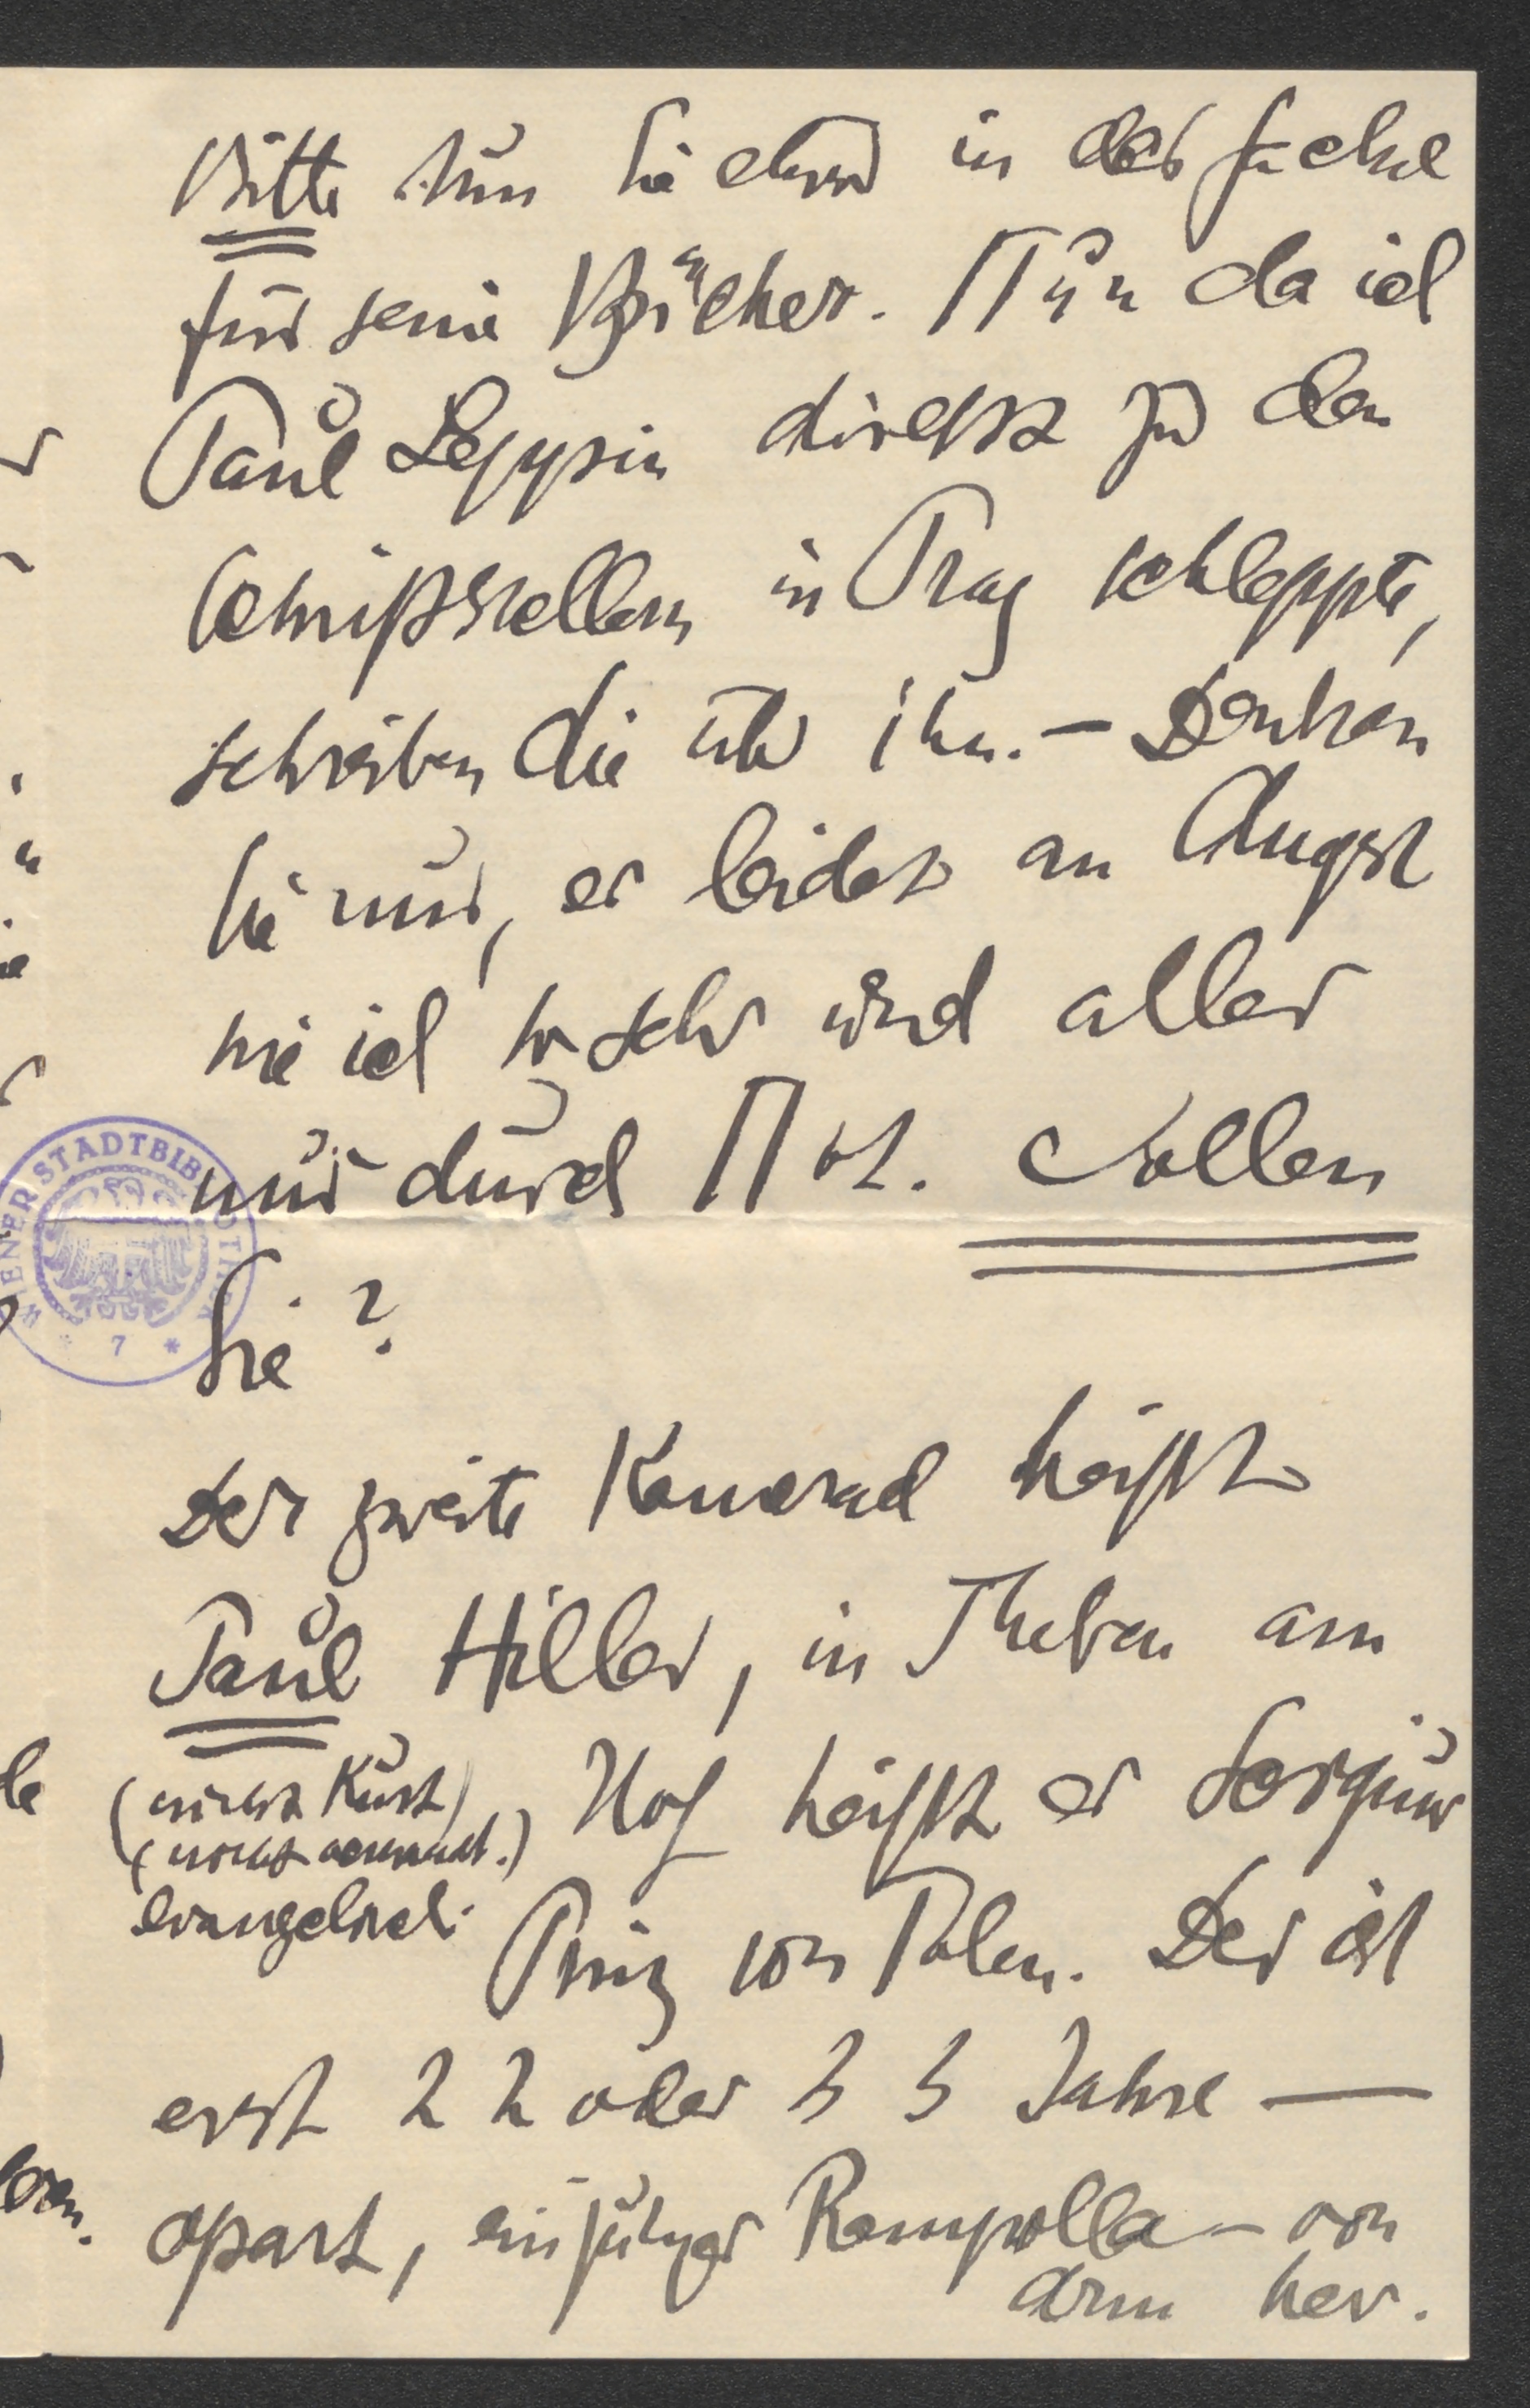 Bitte tun Sie etwas in der Fackel
für seine Bücher. Nun da ich
Paul Leppin direkt zu den
Schriftstellern in Prag schleppte,
schreiben die über ihn. – Denken
Sie nur, er leidet an Angst
wie ich so sehr und aller
nur durch Not. Wollen
Sie?
Der zweite Kamerad heißt
Paul Hiller, in Theben am
(nicht Kurt) Hof heißt er
(nicht verwandt.)
evangelisch. Prinz von Polen. Der ist
erst 22 oder 33 Jahre —
apart, ein junger Rampolla – von
drin her.
WIENER STADTBIBLIOTHEK
* 7 *